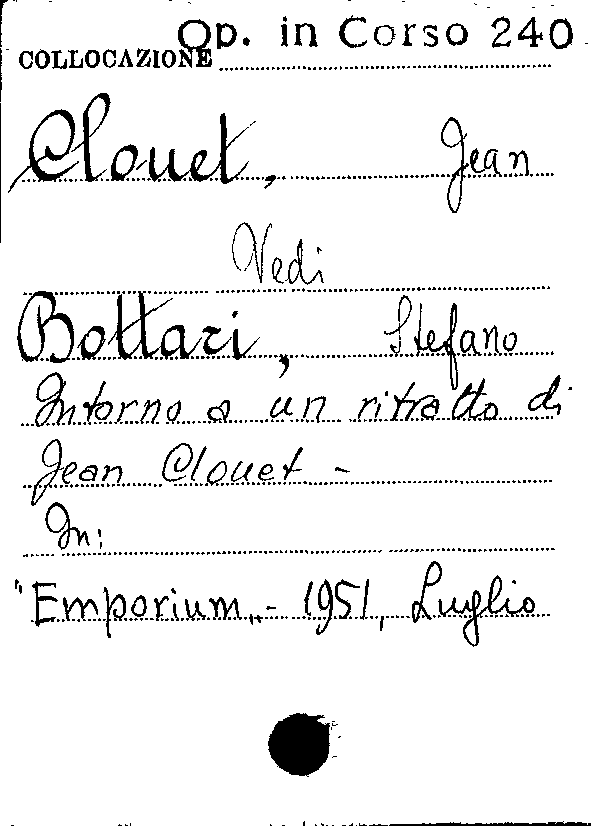 Op. in Corso 240
COLLOCAZIONE
Clouet, Jean
Vedi
Bottari, Stefano
Intorno a un ritratto di
Jean Clouet -
In:
"Emporium„- 1951, Luglio